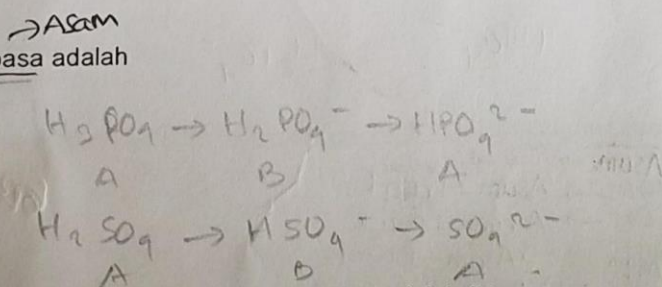 → Asam
asa adalah
H3PO4 → H2PO4⁻ → HPO4²⁻
A B A
H2SO4 → HSO4⁻ → SO4²⁻
A B A